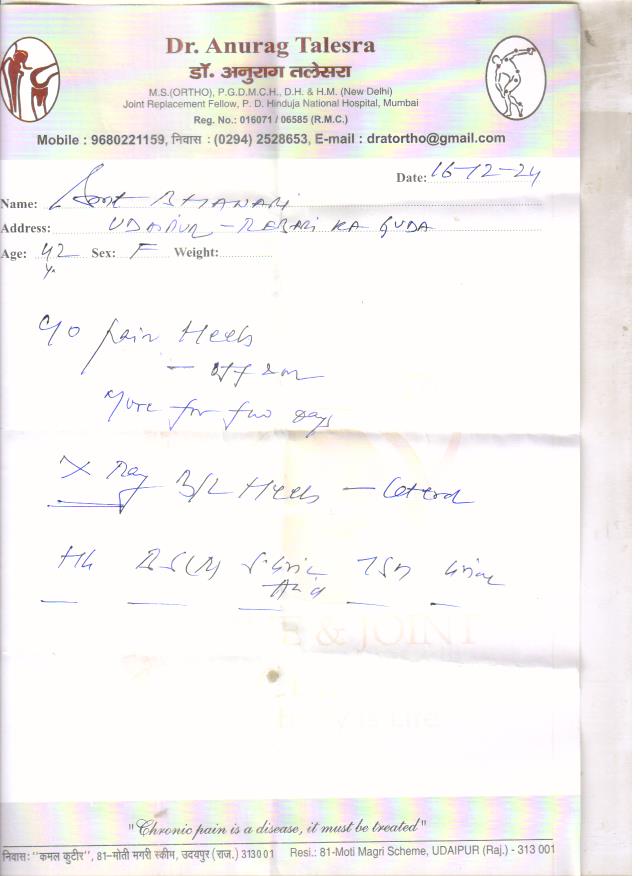 Dr. Anurag Talesra
डॉ. अनुराग तलेसरा
M.S.(ORTHO), P.G.D.M.C.H., D.H. & H.M. (New Delhi)
Joint Replacement Fellow, P. D. Hinduja National Hospital, Mumbai
Reg. No.: 016071 / 06585 (R.M.C.)
Mobile : 9680221159, निवास : (0294) 2528653, E-mail : dratortho@gmail.com
Date: 16-12-24
Name: BHANARI
Address: UDAIPUR - REBARI KA GUDA
Age: 42 y. Sex: F Weight:
C/o pain Heels
- off & on
More for few days
X Ray B/L Heels - Lateral
Hb BS(R) S. Uric Acid TSH Urine
E & JOINT
"Chronic pain is a disease, it must be treated"
निवास: "कमल कुटीर", 81-मोती मगरी स्कीम, उदयपुर (राज.) 313001 Resi.: 81-Moti Magri Scheme, UDAIPUR (Raj.) - 313 001